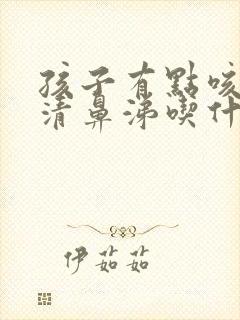 孩子有點咳
清鼻涕喫什
伊茹茹